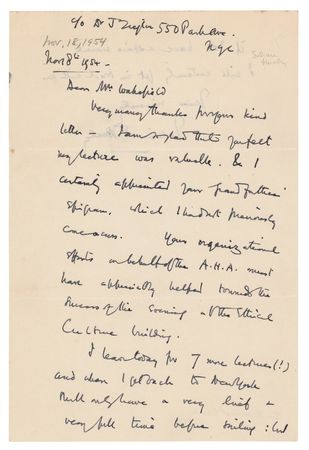 c/o Dr J Ziegler 550 Park Ave.
N.Y.C
Nov. 18, 1954
Julian
Huxley
Nov 8th 1954.
Dear Mrs Wakefield
Very many thanks for your kind
letter — I am so glad that you felt
my lecture was valuable. & I
certainly appreciated your grandfather's
epigram, which I had not previously
come across. Your organizational
efforts on behalf of the A.H.A. must
have appreciably helped towards the
success of the evening at the Ethical
Culture building.
I leave today for 7 more lectures (!)
and when I get back to New York
shall only have a very brief &
very full time before sailing: but